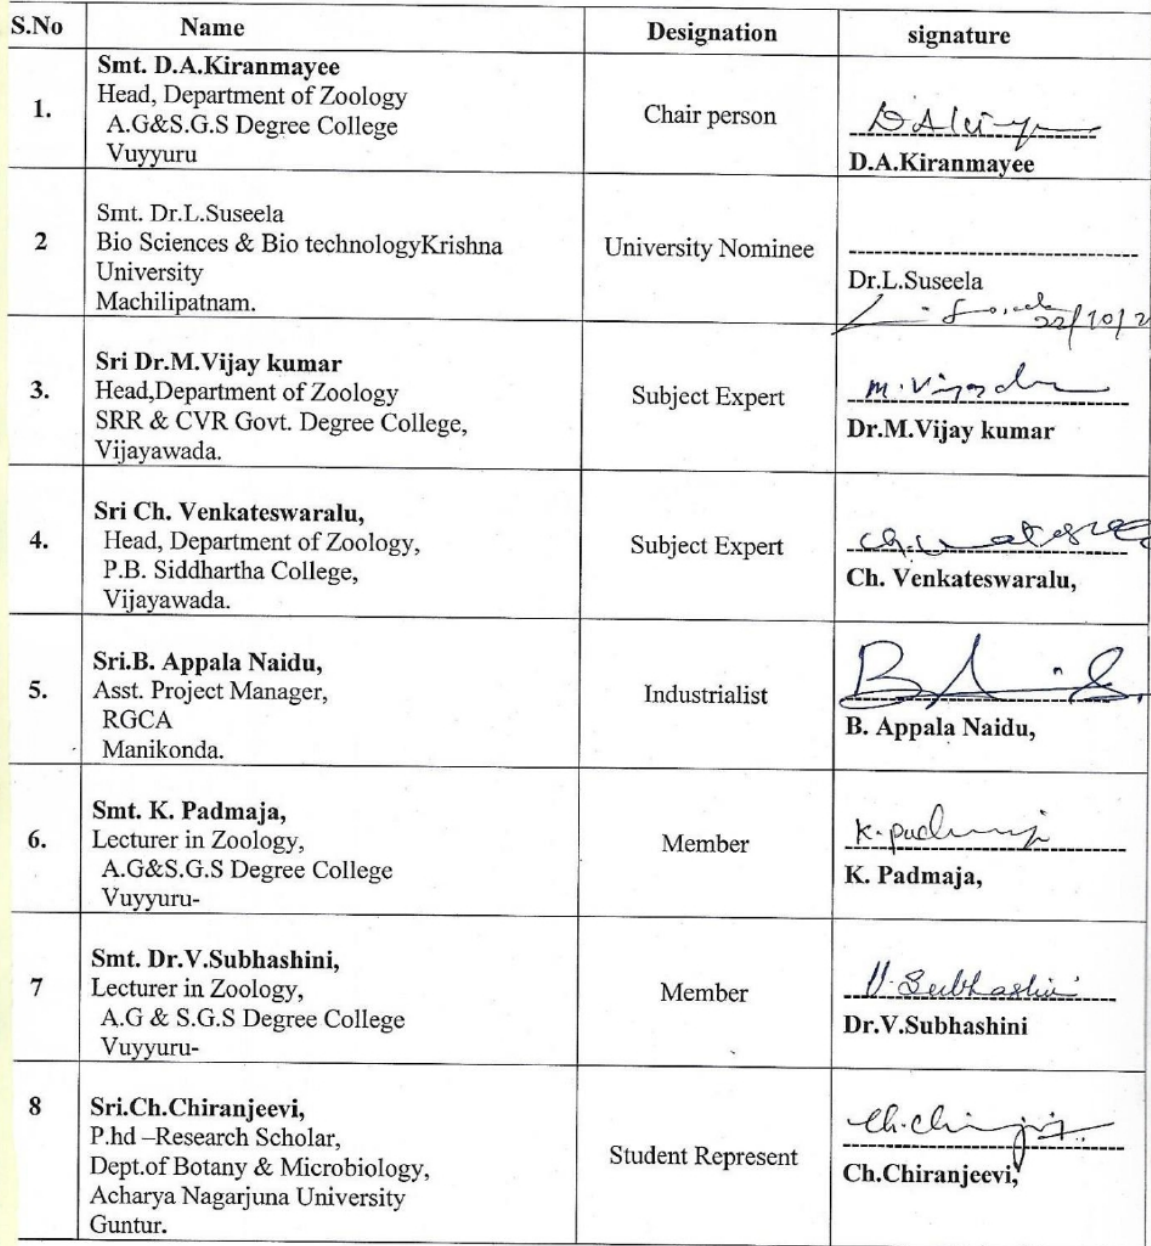 S.No Name Designation signature
1. Smt. D.A.Kiranmayee
Head, Department of Zoology
A.G&S.G.S Degree College
Vuyyuru
Chair person
D.A.Kiranmayee
2 Smt. Dr.L.Suseela
Bio Sciences & Bio technologyKrishna
University
Machilipatnam.
University Nominee
Dr.L.Suseela
22/10/2
3. Sri Dr.M.Vijay kumar
Head,Department of Zoology
SRR & CVR Govt. Degree College,
Vijayawada.
Subject Expert
Dr.M.Vijay kumar
4. Sri Ch. Venkateswaralu,
Head, Department of Zoology,
P.B. Siddhartha College,
Vijayawada.
Subject Expert
Ch. Venkateswaralu,
5. Sri.B. Appala Naidu,
Asst. Project Manager,
RGCA
Manikonda.
Industrialist
B. Appala Naidu,
6. Smt. K. Padmaja,
Lecturer in Zoology,
A.G&S.G.S Degree College
Vuyyuru-
Member
K. Padmaja,
7 Smt. Dr.V.Subhashini,
Lecturer in Zoology,
A.G & S.G.S Degree College
Vuyyuru-
Member
V. Subhashini
Dr.V.Subhashini
8 Sri.Ch.Chiranjeevi,
P.hd –Research Scholar,
Dept.of Botany & Microbiology,
Acharya Nagarjuna University
Guntur.
Student Represent
Ch.Chiranjeevi,